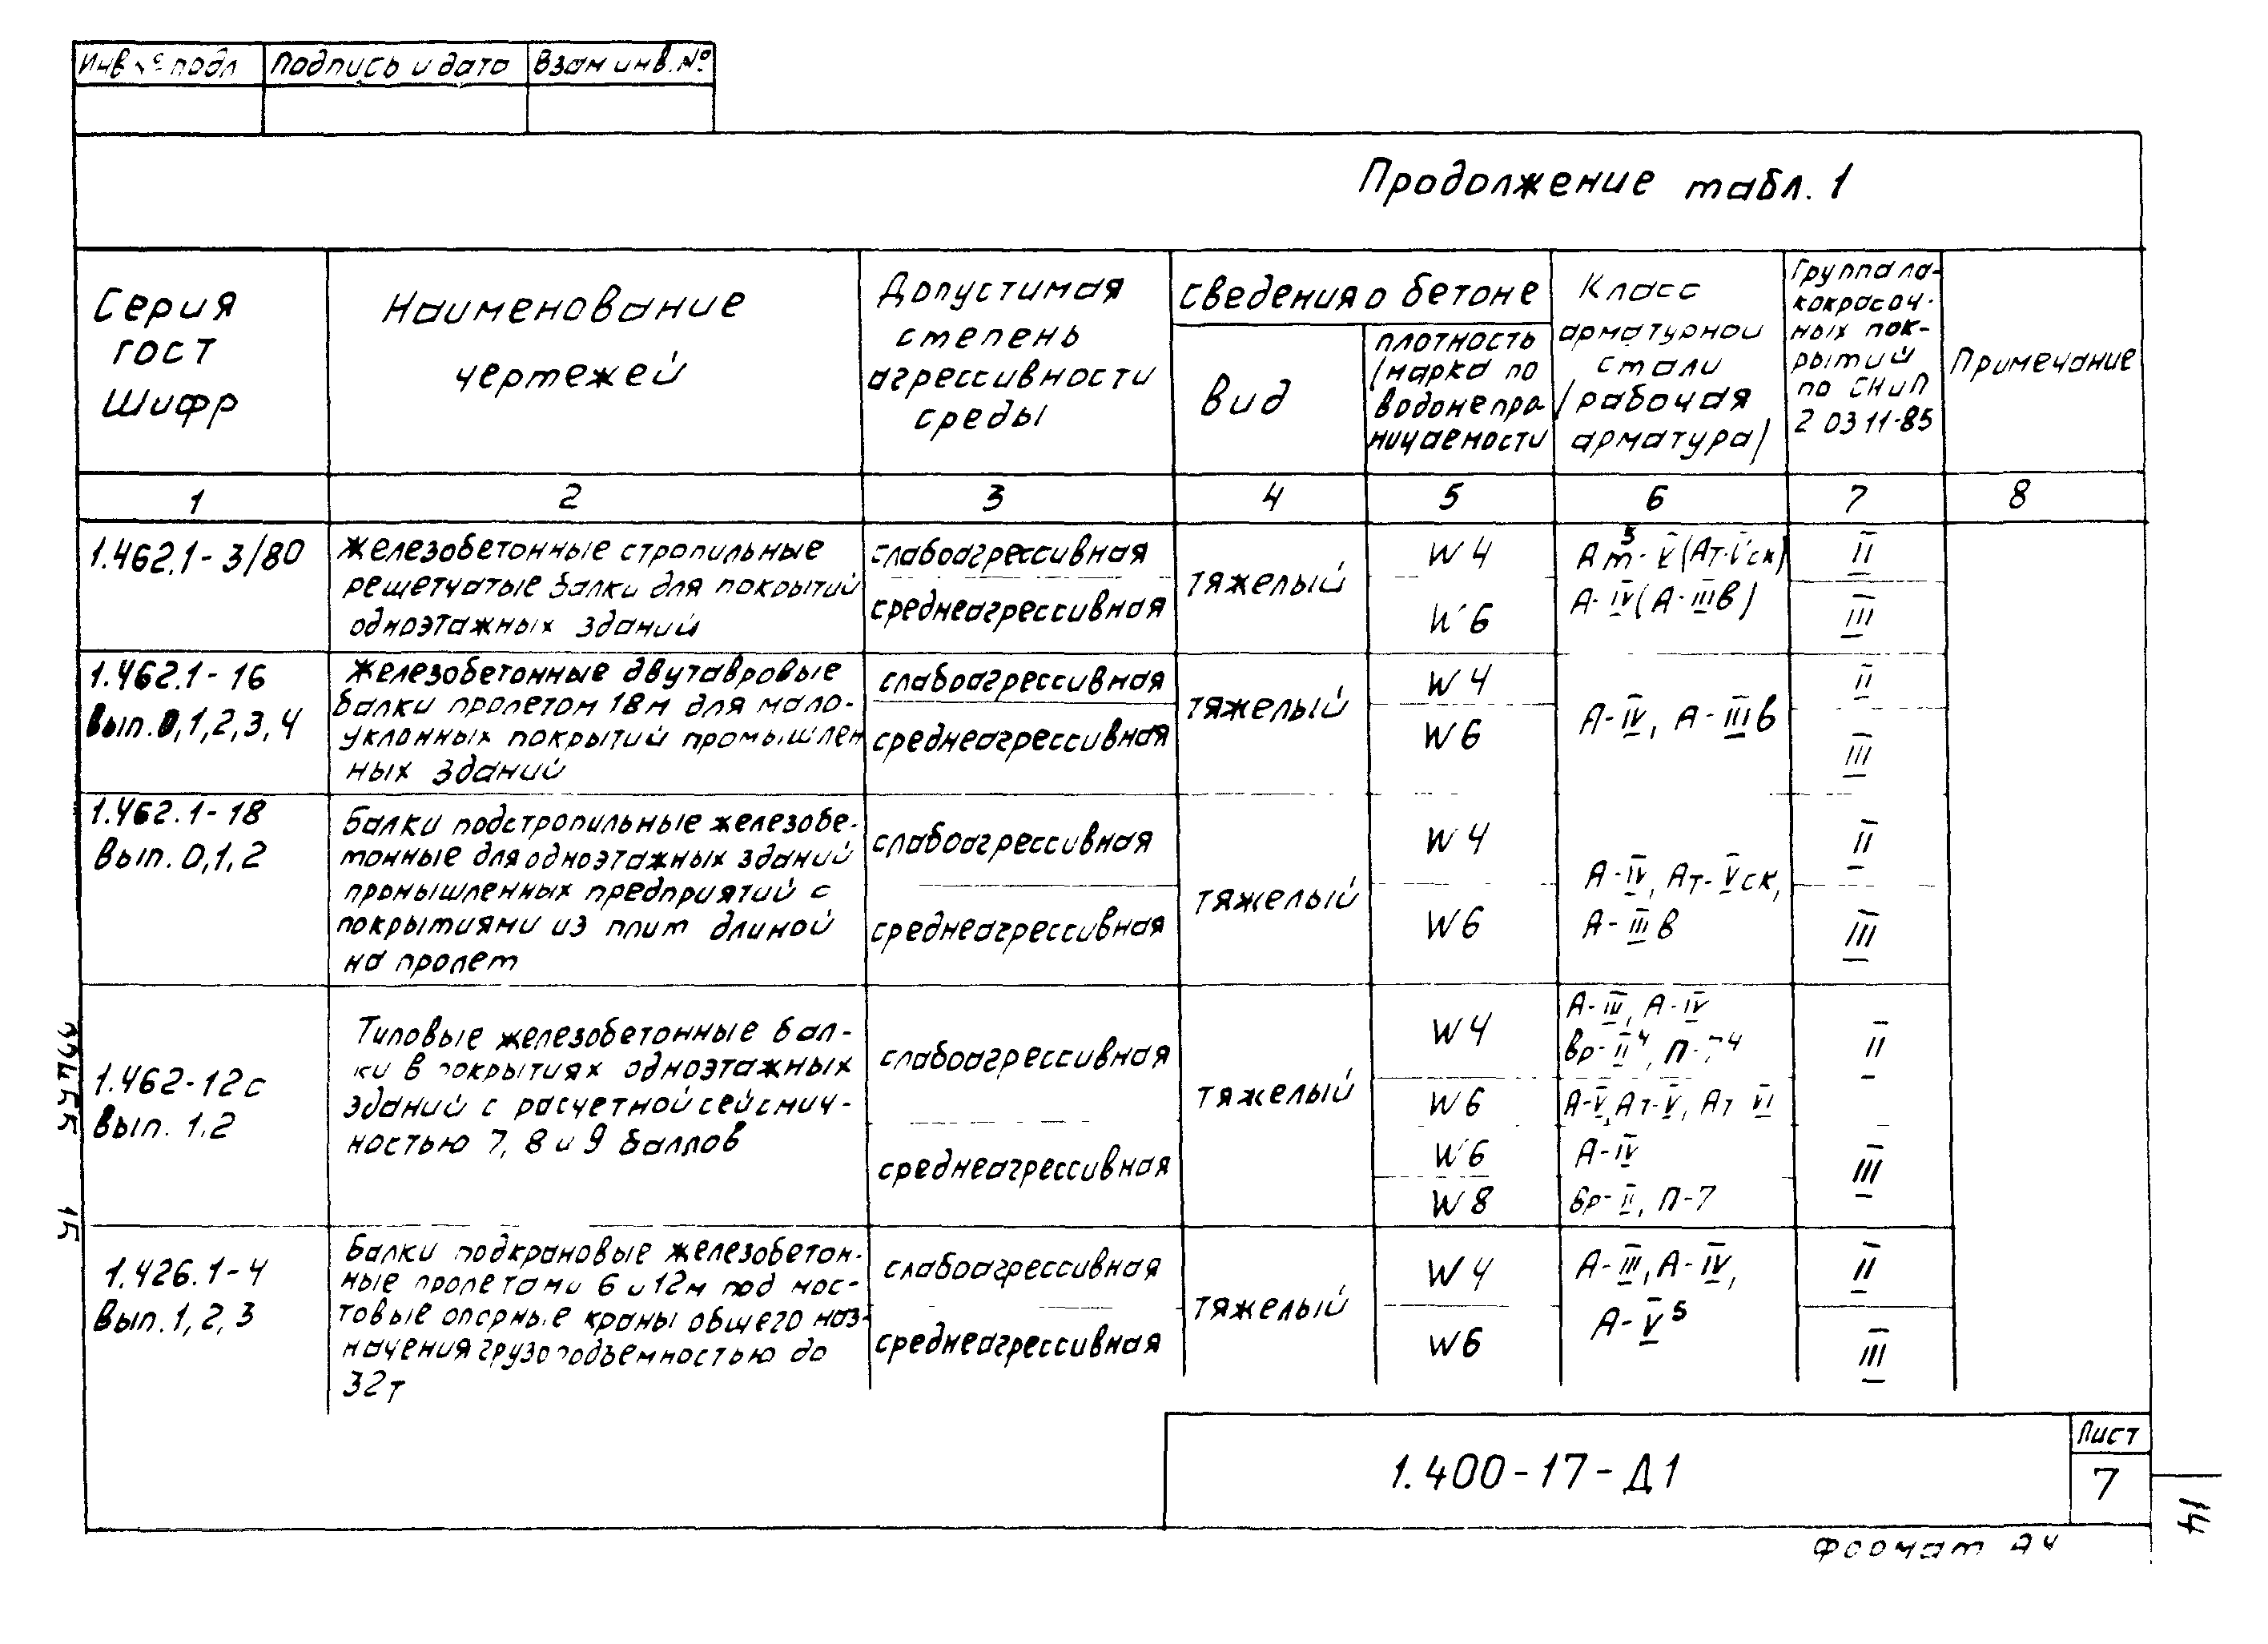 Инв № подл Подпись и дата Взам инв. №
Продолжение табл. 1
Серия
ГОСТ
Шифр
Наименование
чертежей
Допустимая
степень
агрессивности
среды
Сведения о бетоне
Вид
плотность
/марка по
водонепро-
ницаемости
Класс
арматурной
стали
/рабочая
арматура/
Группа ла-
кокрасоч-
ных пок-
рытий
по СНиП
2 03 11-85
Примечание
1 2 3 4 5 6 7 8
1.462.1-3/80
Железобетонные стропильные
решетчатые балки для покрытий
одноэтажных зданий
слабоагрессивная
среднеагрессивная
тяжелый
W4
W6
Ат-V⁵(Ат-Vск)
А-IV(А-IIIв)
II
III
1.462.1-16
Вып. 0,1,2,3,4
Железобетонные двутавровые
балки пролетом 18м для мало-
уклонных покрытий промышлен
ных зданий
слабоагрессивная
среднеагрессивная
тяжелый
W4
W6
А-IV, А-IIIв
II
III
1.462.1-18
Вып. 0,1,2
Балки подстропильные железобе-
тонные для одноэтажных зданий
промышленных предприятий с
покрытиями из плит длиной
на пролет
слабоагрессивная
среднеагрессивная
тяжелый
W4
W6
А-IV, Ат-Vск,
А-IIIв
II
III
1.462-12с
Вып. 1.2
Типовые железобетонные бал-
ки в покрытиях одноэтажных
зданий с расчетной сейсмич-
ностью 7, 8 и 9 баллов
слабоагрессивная
среднеагрессивная
тяжелый
W4
W6
W6
W8
А-III, А-IV
Вр-II⁴, П-7⁴
А-V, Ат-V, Ат VI
А-IV
Вр-II, П-7
II
III
1.426.1-4
Вып. 1, 2, 3
Балки подкрановые железобетон-
ные пролетами 6 и 12м под мос-
товые опорные краны общего наз-
начения грузоподъемностью до
32т
слабоагрессивная
среднеагрессивная
тяжелый
W4
W6
А-III, А-IV,
А-V⁵
II
III
15
1.400-17-Д1
Лист
7
14
Формат А4